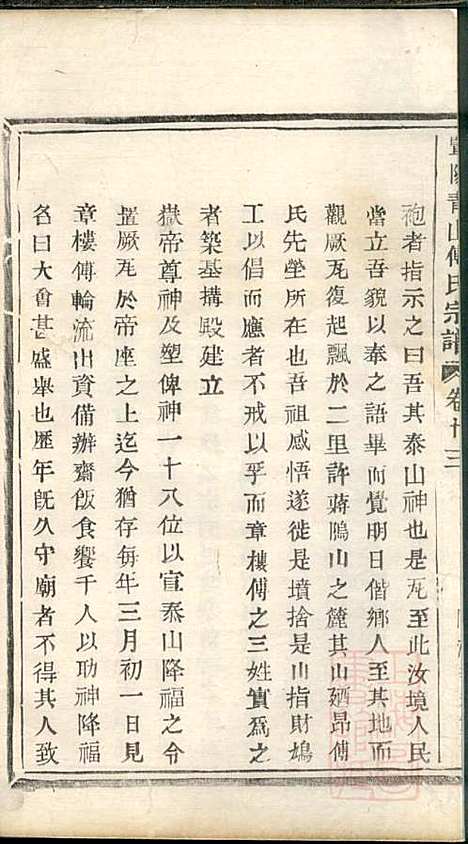 暨陽青山傅氏宗譜 卷廿三
袍者指示之曰吾其泰山神也是瓦至此汝境人民
當立吾貌以奉之語畢而覺明日偕鄉人至其地而
觀厥瓦復起飄於二里許蔣鴟山之麓其山廼昂傅
氏先塋所在也吾祖感悟遂徙是墳捨是山指財鳩
工以倡而應者不戒以孚而章樓傅之三姓實爲之
者築基搆殿建立
嶽帝尊神及塑俾神一十八位以宣泰山降福之令
置厥瓦於帝座之上迄今猶存每年三月初一日見
章樓傅輪流出資備辦齋飯食饗千人以劝神降福
名曰大會甚盛舉也歷年旣久守廟者不得其人致